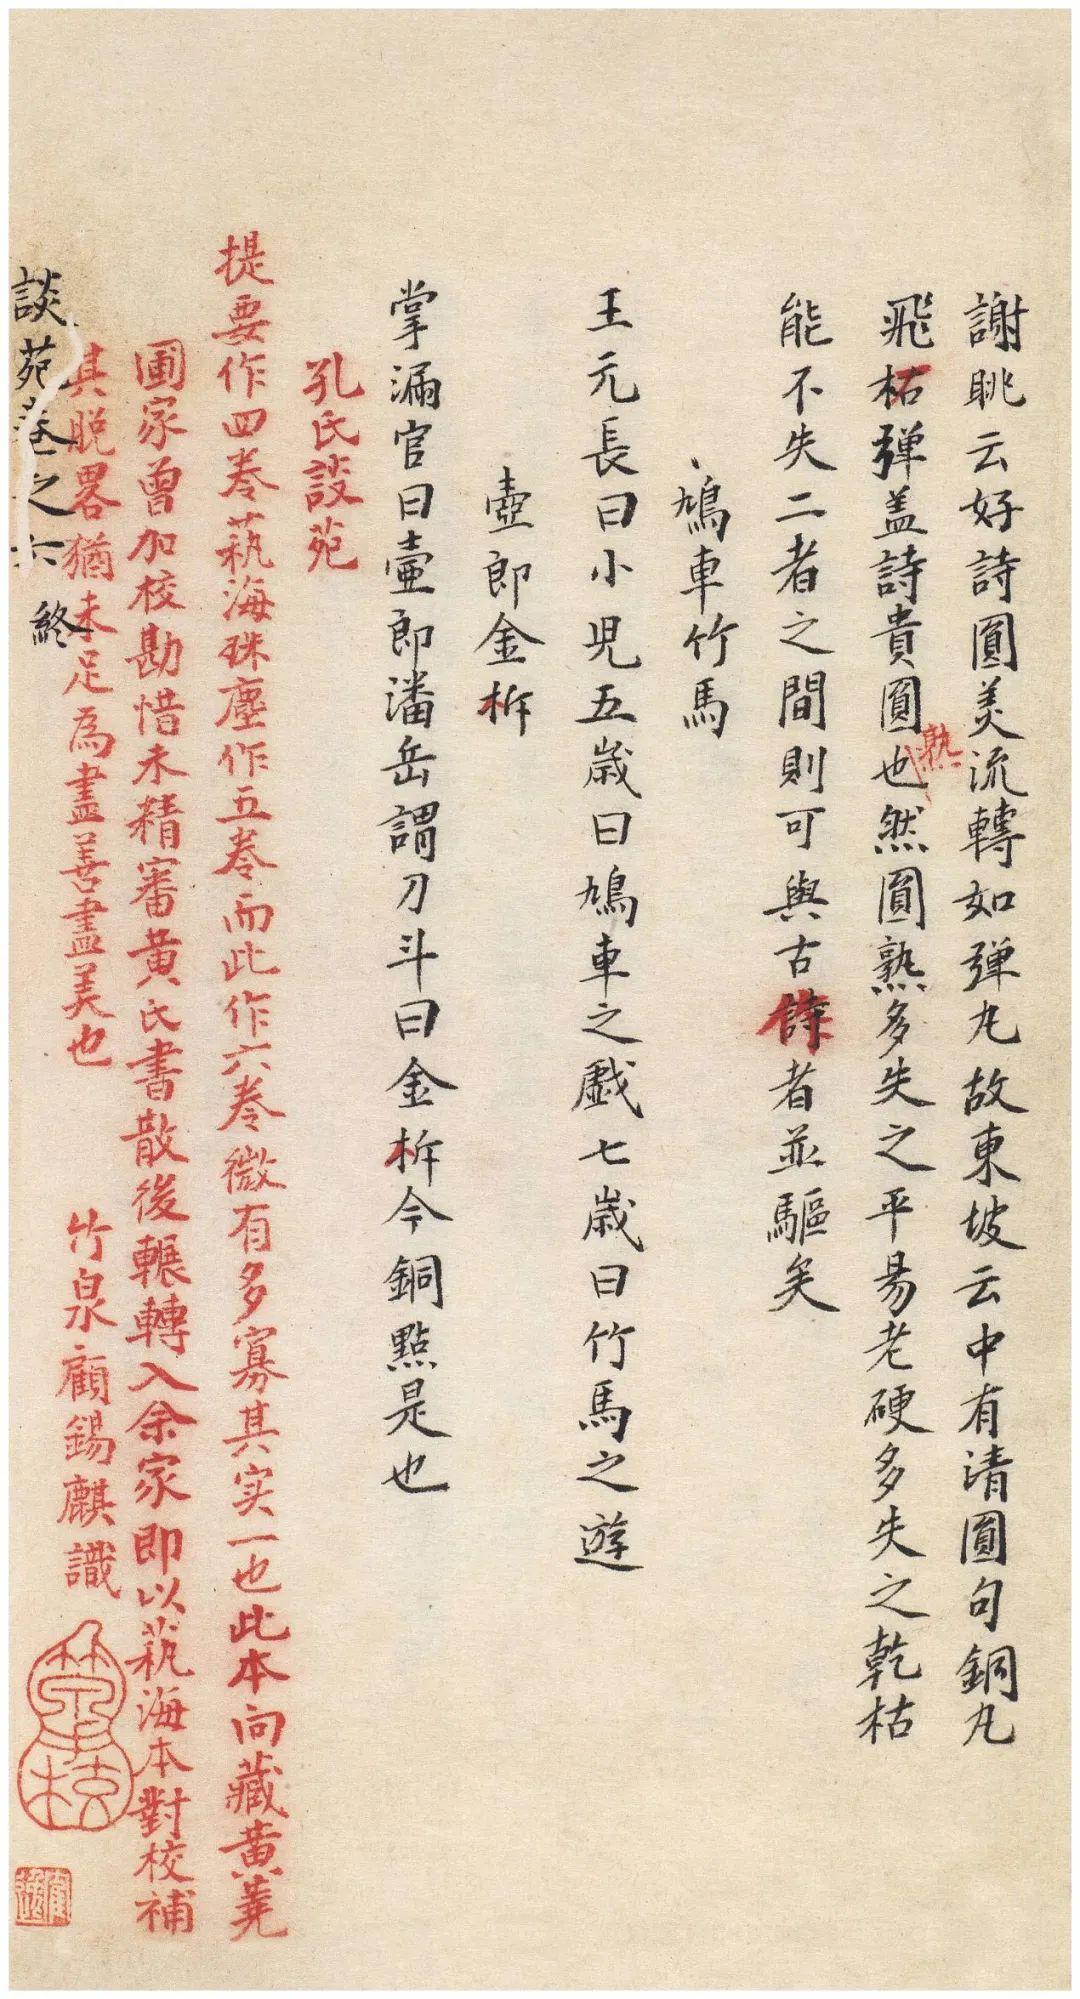 謝眺云好詩圓美流轉如弹丸故東坡云中有清圓句銅丸
飛柘弹盖詩貴圓也然圓熟多失之平易老硬多失之乾枯
熟
能不失二者之間則可與古詩者並驅矣
鳩車竹馬
王元長曰小児五歳曰鳩車之戲七歳曰竹馬之遊
壺郎金柝
掌漏官曰壷郎潘岳謂刀斗曰金柝今銅點是也
孔氏談苑
提要作四卷藝海珠塵作五卷而此作六卷微有多寡其实一也此本向藏黄蕘
圃家曾加校勘惜未精審黄氏書散後輾轉入余家即以藝海本對校補
其脱畧猶未足為盡善盡美也 竹泉顧錫麒識
談苑卷之六 終